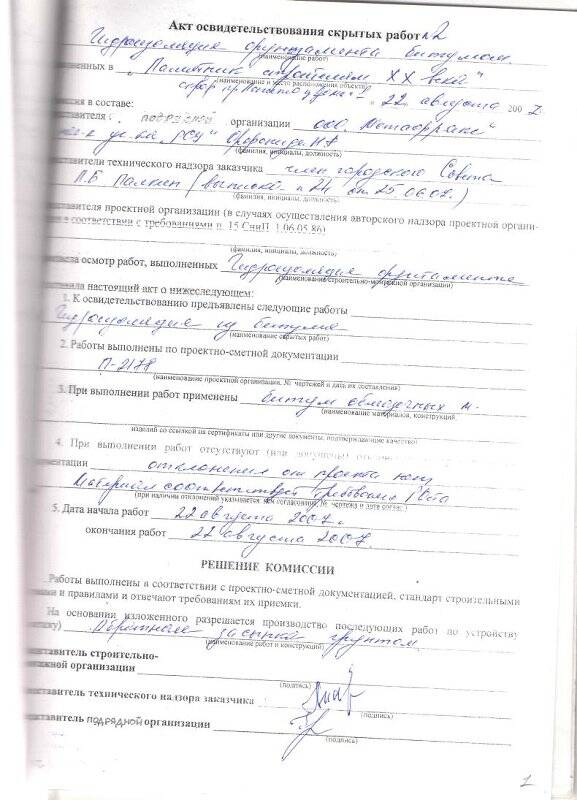 Акт освидетельствования скрытых работ №2
Гидроизоляция фундамента битумом
(наименование работ)
в „Памятник строителям XX века"
(наименование и место расположения объекта)
„22„ августа 2007
в составе:
подрядной организации ООО
(фамилия, инициалы, должность)
технического надзора заказчика член городского Совета
П.Б Палкин (выписка №24 от 25.06.07.)
(фамилия, инициалы, должность)
проектной организации (в случаях осуществления авторского надзора проектной органи-
в соответствии с требованиями п. 15 СниП 1.06.05.86)
(фамилия, инициалы, должность)
осмотр работ, выполненных Гидроизоляция фундамента
(наименование строительно-монтажной организации)
настоящий акт о нижеследующем:
1. К освидетельствованию предъявлены следующие работы
Гидроизоляция из битума
(наименование скрытых работ)
2. Работы выполнены по проектно-сметной документации
П-2178
(наименование проектной организации, № чертежей и дата их составления)
3. При выполнении работ применены битум
(наименование материалов, конструкций,
изделий со ссылкой на сертификаты или другие документы, подтверждающие качество)
4. При выполнении работ отсутствуют (или допущены)
отклонения от проекта нет
Материал соответствует требованиям Госта
(при наличии отклонений указывается, кем согласованы, № чертежа и дата соглас.)
5. Дата начала работ 22 августа 2007г.
окончания работ 22 августа 2007.
РЕШЕНИЕ КОМИССИИ
Работы выполнены в соответствии с проектно-сметной документацией, стандарт строительными
и правилами и отвечают требованиям их приемки.
На основании изложенного разрешается производство последующих работ по устройству
Обратная засыпка грунтом
(наименование работ и конструкций)
строительно-
организации
(подпись)
технического надзора заказчика
(подпись)
подрядной организации
(подпись)
1